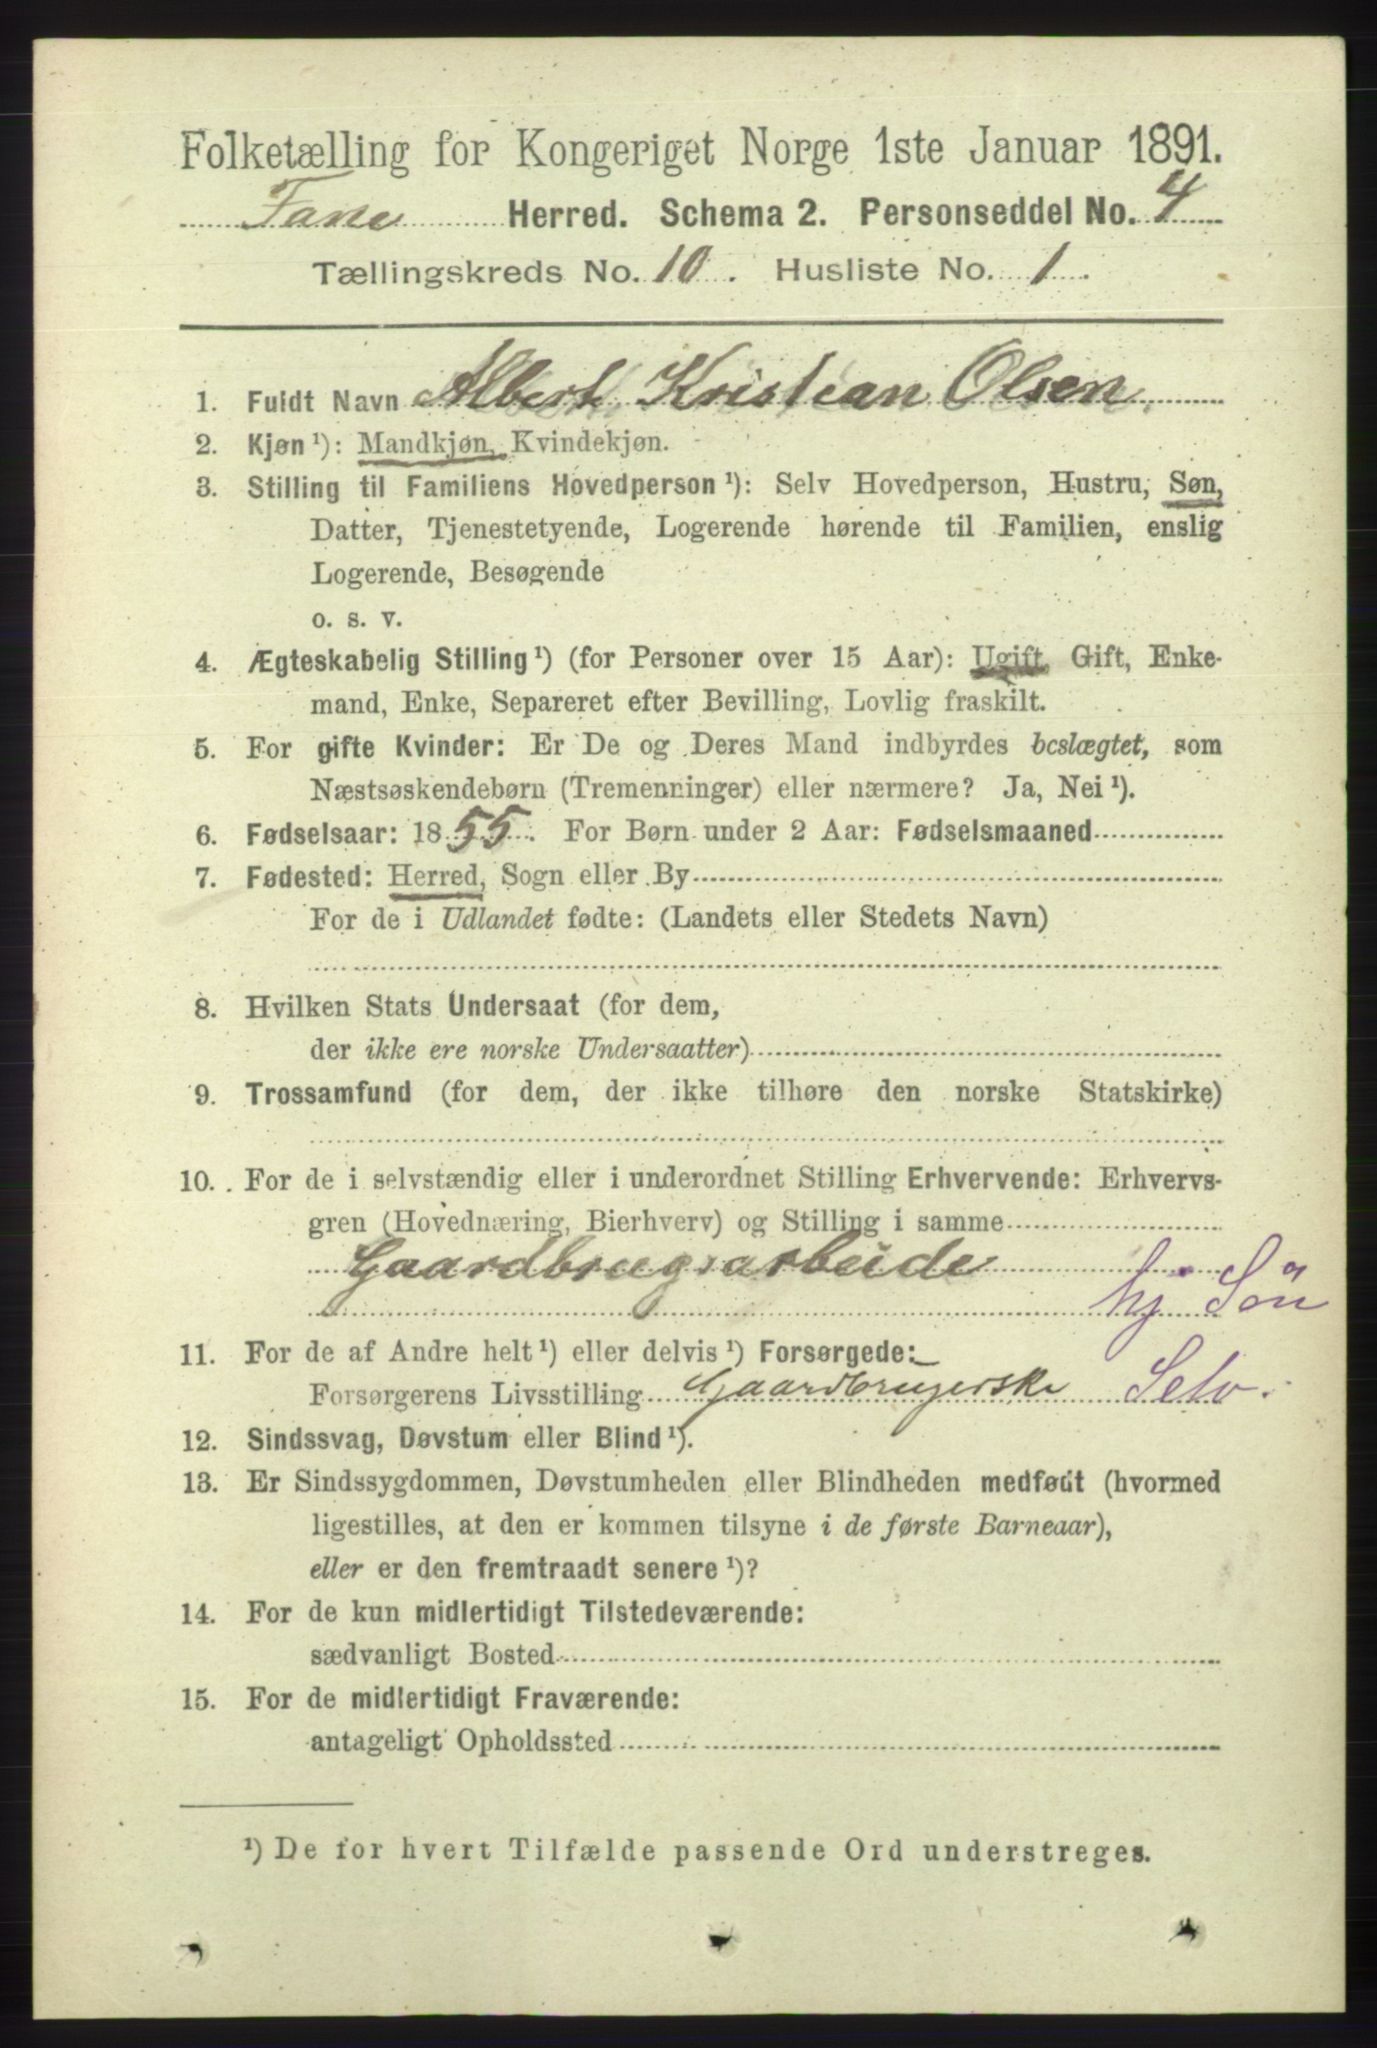 Folketælling for Kongeriget Norge 1ste Januar 1891.
Fane Herred. Schema 2. Personseddel No. 4
Tællingskreds No. 10. Husliste No. 1.
1. Fuldt Navn Albert Kristian Olsen.
2. Kjøn¹): Mandkjøn, Kvindekjøn.
3. Stilling til Familiens Hovedperson¹): Selv Hovedperson, Hustru, Søn,
Datter, Tjenestetyende, Logerende hørende til Familien, enslig
Logerende, Besøgende
o. s. v.
4. Ægteskabelig Stilling¹) (for Personer over 15 Aar): Ugift, Gift, Enke-
mand, Enke, Separeret efter Bevilling, Lovlig fraskilt.
5. For gifte Kvinder: Er De og Deres Mand indbyrdes beslægtet, som
Næstsøskendebørn (Tremenninger) eller nærmere? Ja, Nei¹).
6. Fødselsaar: 1855. For Børn under 2 Aar: Fødselsmaaned
7. Fødested: Herred, Sogn eller By
For de i Udlandet fødte: (Landets eller Stedets Navn)
8. Hvilken Stats Undersaat (for dem,
der ikke ere norske Undersaatter)
9. Trossamfund (for dem, der ikke tilhøre den norske Statskirke)
10. For de i selvstændig eller i underordnet Stilling Erhvervende: Erhvervs-
gren (Hovednæring, Bierhverv) og Stilling i samme
Gaardbrugsarbeide
hj Sön
11. For de af Andre helt¹) eller delvis¹) Forsørgede:
Forsørgerens Livsstilling Gaardbrugerske Selv.
12. Sindssvag, Døvstum eller Blind¹).
13. Er Sindssygdommen, Døvstumheden eller Blindheden medfødt (hvormed
ligestilles, at den er kommen tilsyne i de første Barneaar),
eller er den fremtraadt senere¹)?
14. For de kun midlertidigt Tilstedeværende:
sædvanligt Bosted
15. For de midlertidigt Fraværende:
antageligt Opholdssted
¹) De for hvert Tilfælde passende Ord understreges.